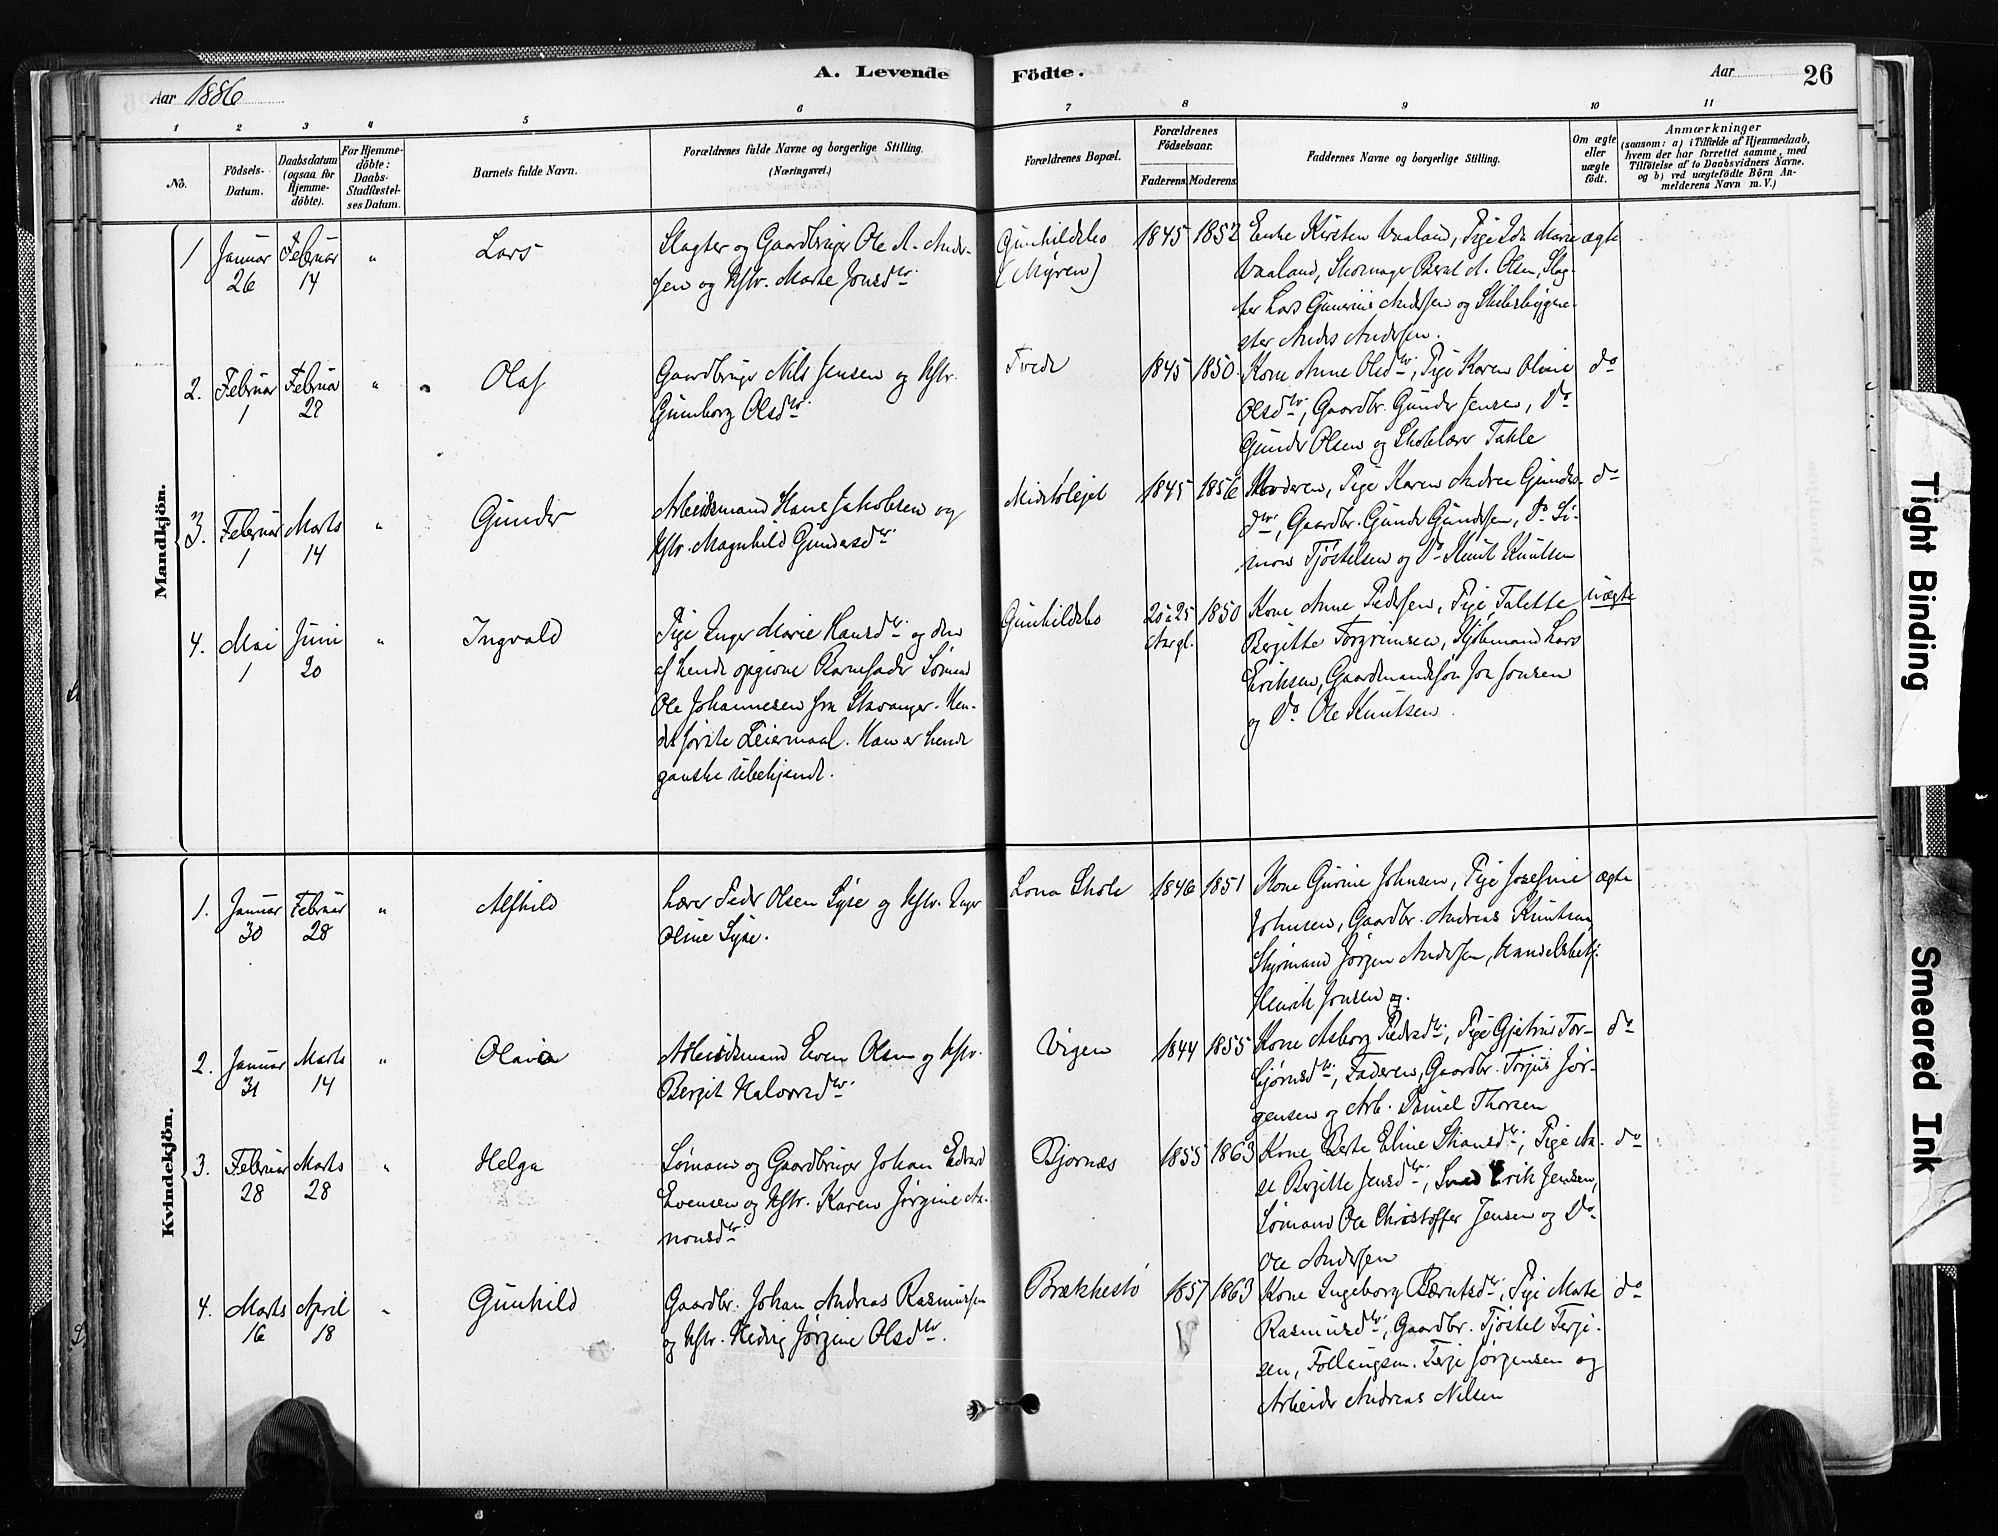 A. Levende Födte.
Aar 1886
Aar 26
1 2 3 4 5 6 7 8 9 10 11
No.
Födsels-Datum.
Daabsdatum (ogsaa for Hjemme-döbte).
For Hjemme-döbte: Daabs-Stadfæstel-ses Datum.
Barnets fulde Navn.
Forældrenes fulde Navne og borgerlige Stilling.
(Næringsvei.)
Forældrenes Bopæl.
Forældrenes Födselsaar.
Faderens. Moderens.
Faddernes Navne og borgerlige Stilling.
Om ægte eller uægte födt.
Anmærkninger
(saasom: a) i Tilfælde af Hjemmedaab,
hvem der har forrettet samme, med
Tilföielse af to Daabsvidners Navne.
og b) ved uægtefödte Börn An-
melderens Navn m. V.)
Mandkjön.
1 Januar 26 Februar 14 " Lars
Slagter og Gaardbruger Ole A. Ander-
sen og Hstr. Marte Jonsdtr.
Gunhildsbo
(Myren)
1845 1852
Enke Kirsten Vaaland, Pige Ida Marie
Vaaland, Skomager Bernt A. Olsen, Slag-
ter Lars Gunerius Andersen og Skibsbygme-
ster Anders Andersen.
ægte
2. Februar 1 Februar 28 " Olaf
Gaardbruger Nils Jensen og Hstr.
Gunborg Olsdtr.
Tvede
1845 1850
Kone Anne Olsdtr, Pige Karen Oline
Olsdtr, Gaardbr. Gunder Jensen, Do
Gunder Olsen og Skolelærer Takle
do
3. Februar 1 Marts 14 " Gunder
Arbeidsmand Hans Jakobsen og
Hstr. Magnhild Gundersdtr.
1845 1856
Moderen, Pige Karen Andrea Gunders-
dtr, Gaardbr. Gunder Gundersen, Do Si-
mon Tjøstelsen og Do Knut Knutsen
do
4. Mai 1 Juni 20 " Ingvald
Pige Inger Marie Hansdtr. og den
af hende opgivne Barnefader Sømand
Ole Johannesen fra Stavanger. Hen-
des første Leiermaal. Han er hende
ganske ubekjendt.
Gunhildsbo
20 à 25 Aar gl. 1850
Kone Anne Pedersen, Pige Talette
Bergitte Torgrimsen, Lars
Eriksen, Gaardmandssøn Jon Jonsen
og Do Ole Knutsen.
uægte
Kvindekjön.
1. Januar 30 Februar 28 " Alfhild
Lærer Peder Olsen Lyse og Hstr. Inger
Oline Lyse.
Lona Skole
1846 1851
Kone Gurine Johnsen, Pige Josefine
Johnsen, Gaardbr. Andreas Knutsen,
Styrmand Jørgen Andersen, Handelsbetj.
Henrik Jonsen og.
ægte
2. Januar 31 Marts 14 " Olava
Arbeidsmand Even Olsen og Hstr.
Bergit Halvorsdtr.
Vigen
1844 1855
Kone Asborg Pedersdtr., Pige Gjetrus Tor-
bjørnsdtr, Faderen, Gaardbr. Torjus Jør-
gensen og Arb. Daniel Thorsen
do
3. Februar 28 Marts 28 " Helga
Sømand og Gaardbruger Johan Edvard
Evensen og Hstr. Karen Jørgine Aa-
nonsdtr.
Bjornæs
1855 1863
Kone Berte Eline dtr., Pige An-
ne Bergitte Jensdtr, Smed Erik Jensen,
Sømand Ole Christoffer Jensen og Do
Ole Andersen
do
4. Marts 16 April 18 " Gunhild
Gaardbr. Johan Andreas Rasmussen
og Hstr. Hedvig Jørgine Olsdtr.
Brækkestø
1857 1863
Kone Ingeborg Berntsdtr., Pige Marte
Rasmusdtr, Gaardbr. Tjøstel Terje-
sen, Terje Jørgensen og
Arbeider Andreas Nilsen
do
Tight Binding
Smeared Ink